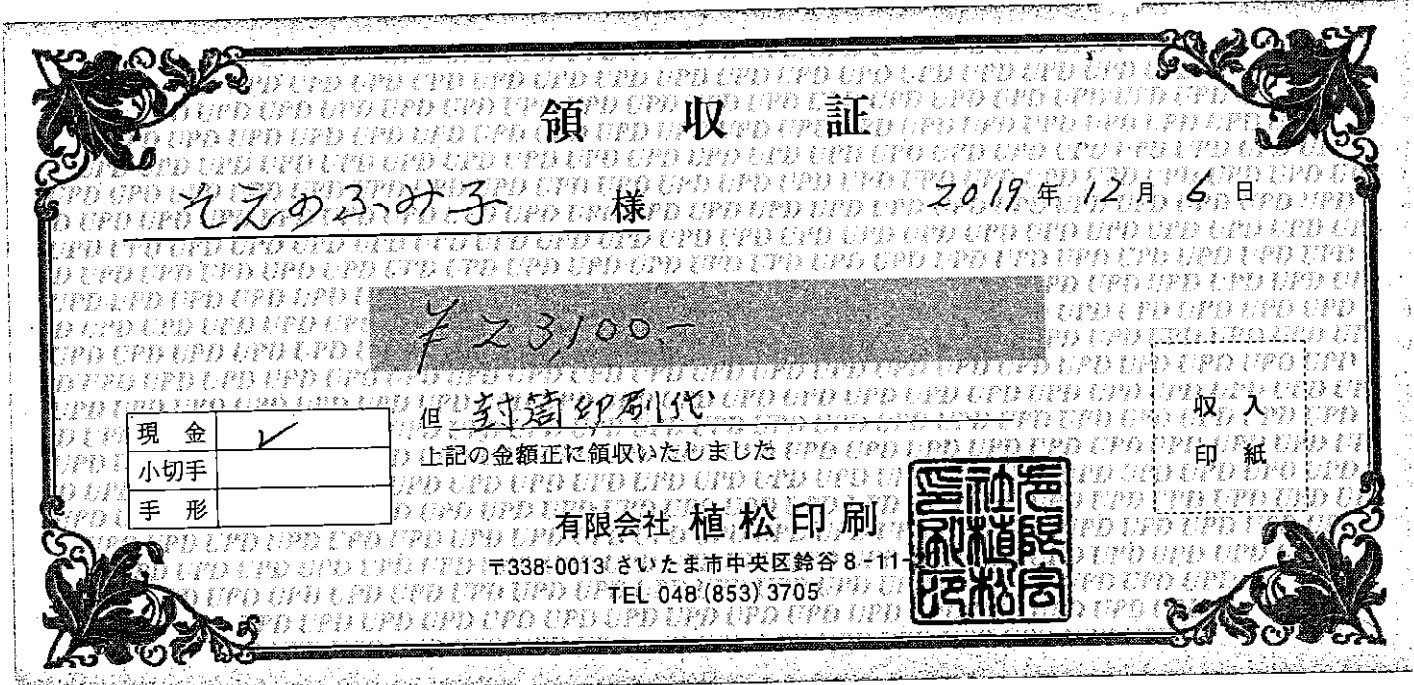 領収証
そえのふみ子 様 2019年 12月 6日
¥23,100.-
但 封筒印刷代
上記の金額正に領収いたしました
現金 ✓
小切手
手形
収入
印紙
有限会社 植松印刷
〒338-0013 さいたま市中央区鈴谷8-11-
TEL 048(853)3705
有限会社植松印刷印